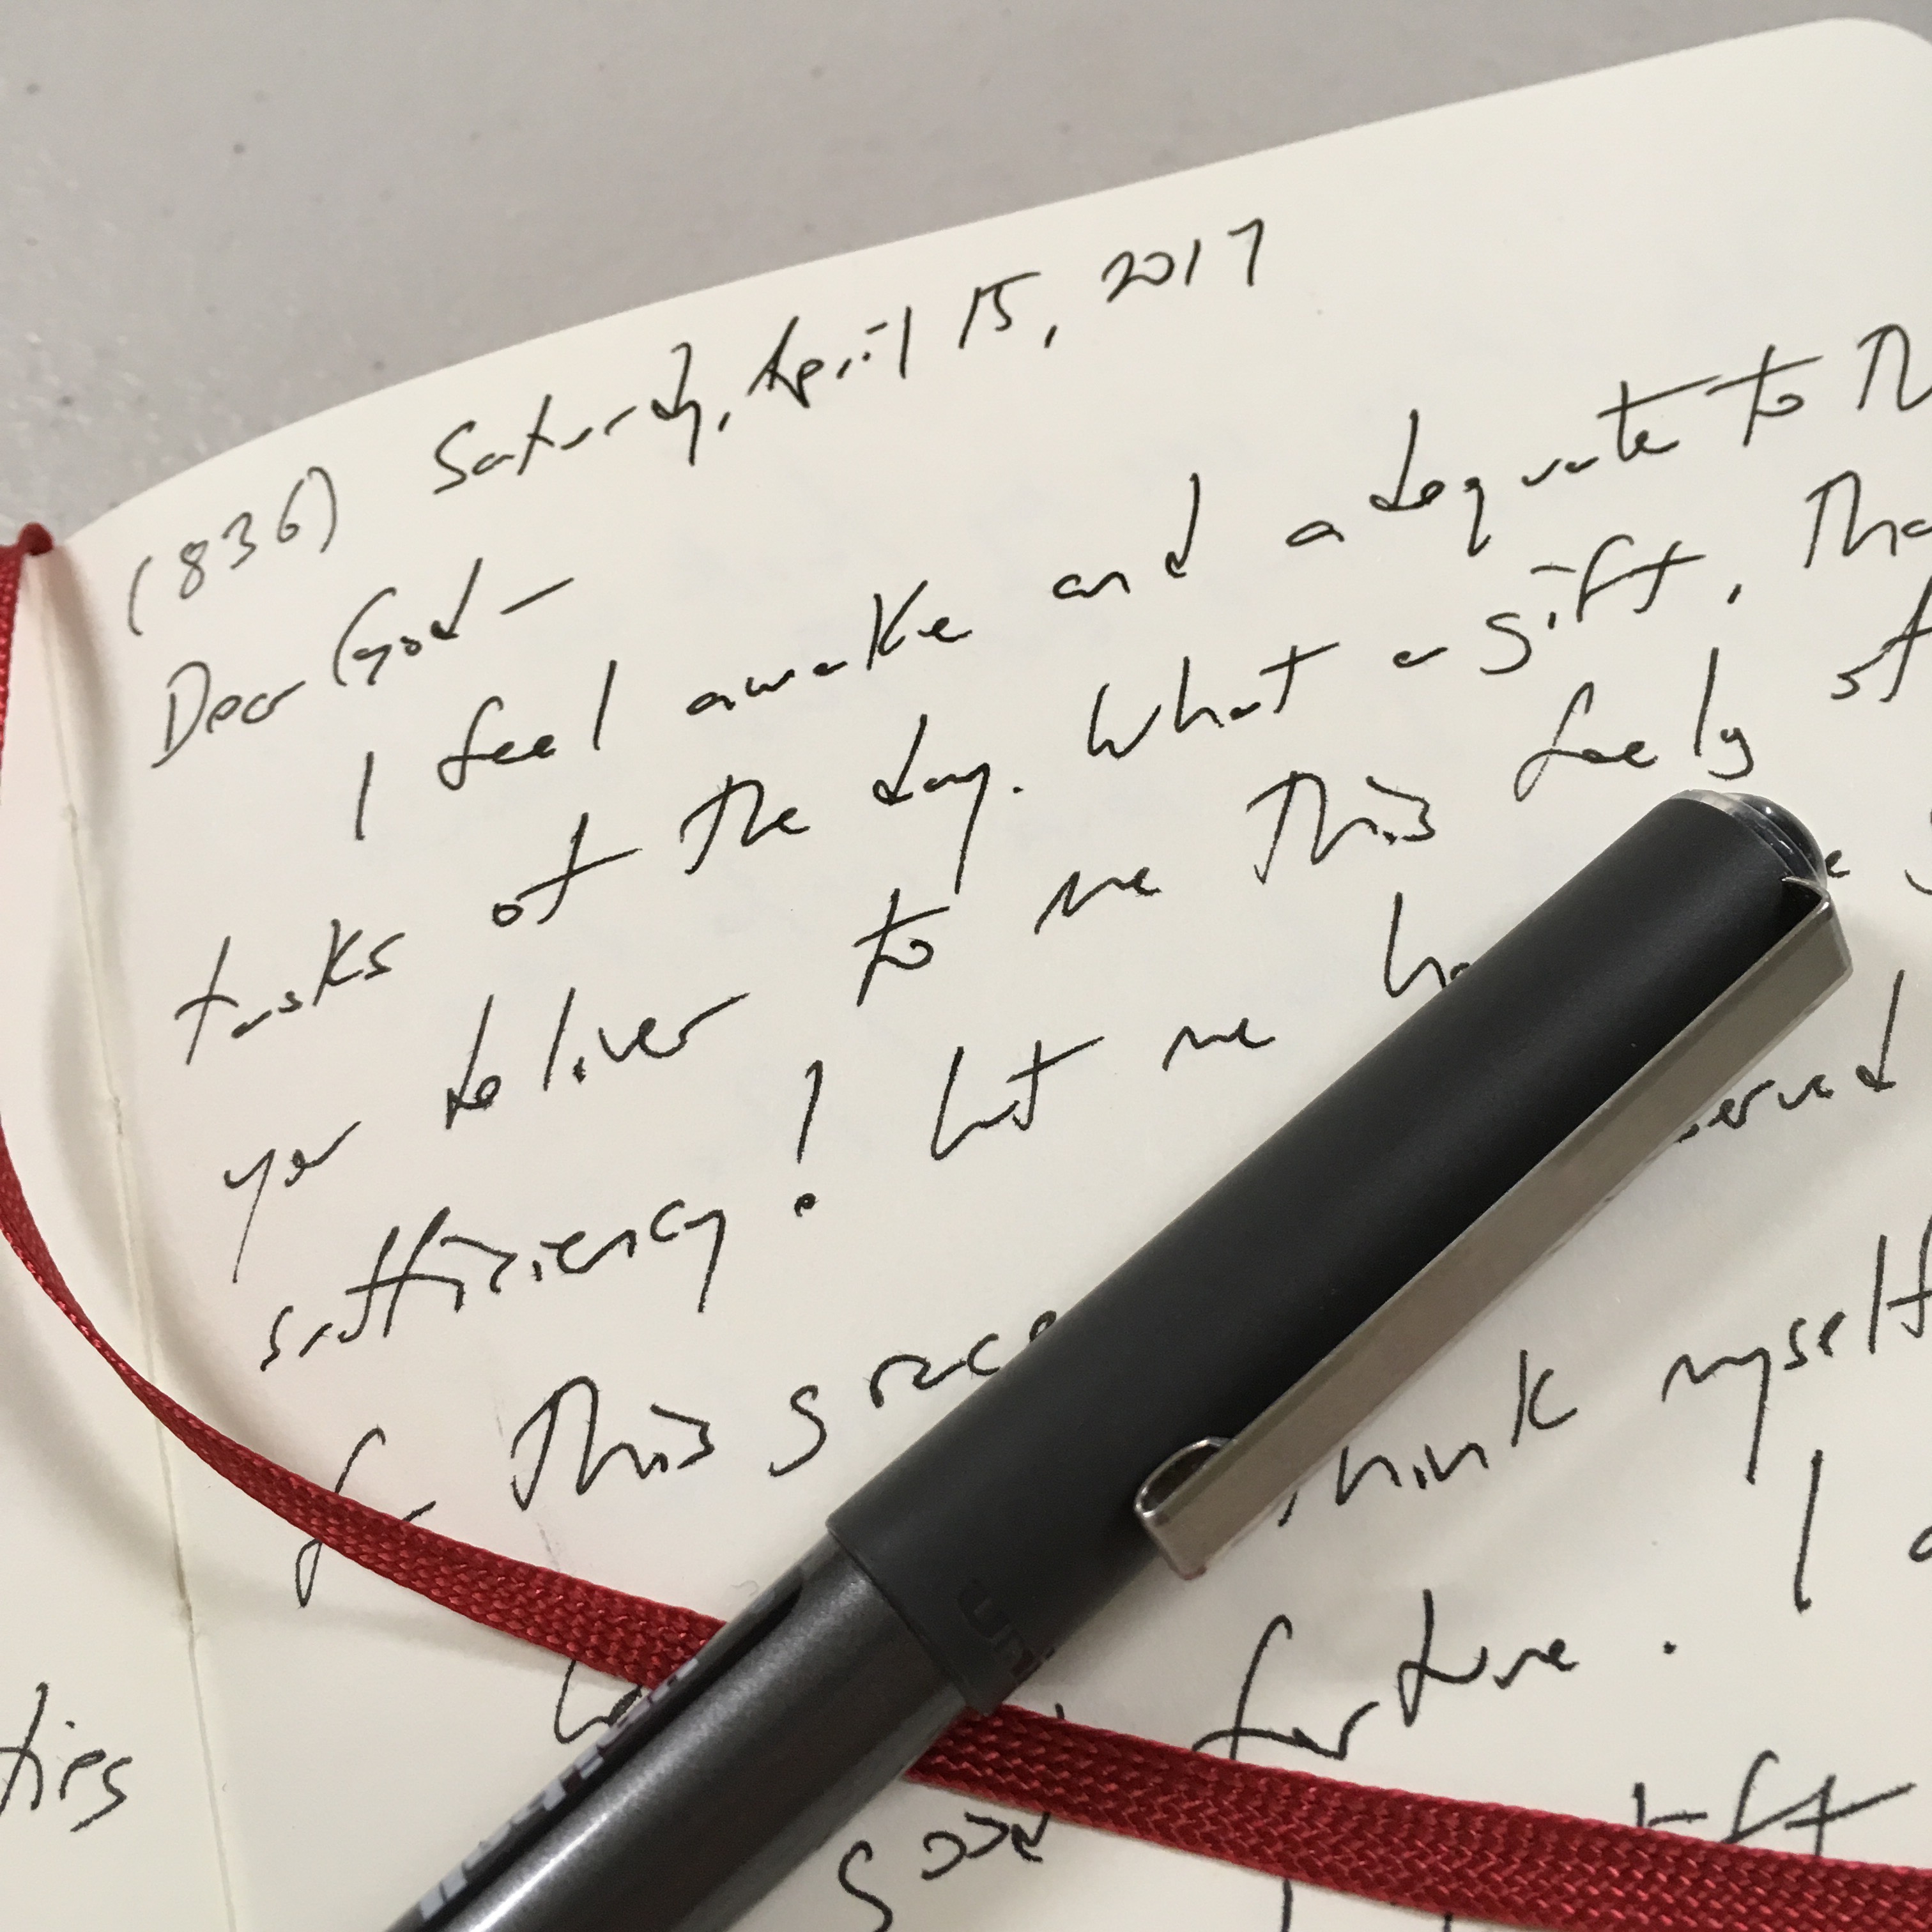 (836) Saturday, April 15, 2017
Dear God —
I feel awake and adequate to
tasks of the day. What a gift, that
you deliver to me this feely of
sufficiency! Let me
for this grace
think myself
good fortune. I
gift
ties
uni